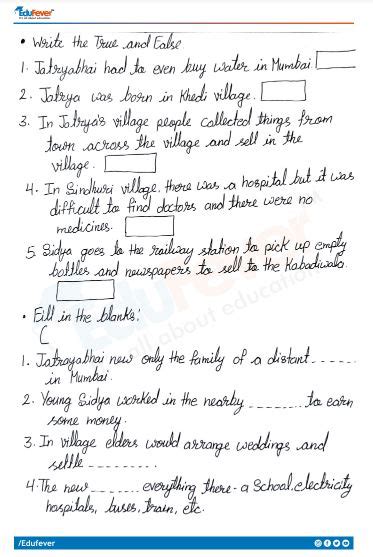 EduFever
• Write the True and False
1. Jatryabhai had to even buy water in Mumbai
2. Jatrya was born in Khedi village.
3. In Jatrya's village people collected things from
town across the village and sell in the
village.
4. In Sindhuri village, there was a hospital but it was
difficult to find doctors and there were no
medicines.
5. Sidya goes to the railway station to pick up empty
bottles and newspapers to sell to the Kabadiwala.
EduFever
all about education
• Fill in the blanks:
1. Jatrayabhai new only the family of a distant -----
in Mumbai.
2. Young Sidya worked in the nearby ------- to earn
some money.
3. In village elders would arrange weddings and
settle ---------.
4. The new ------ everything there - a School, electricity
hospitals, buses, train, etc.
/Edufever